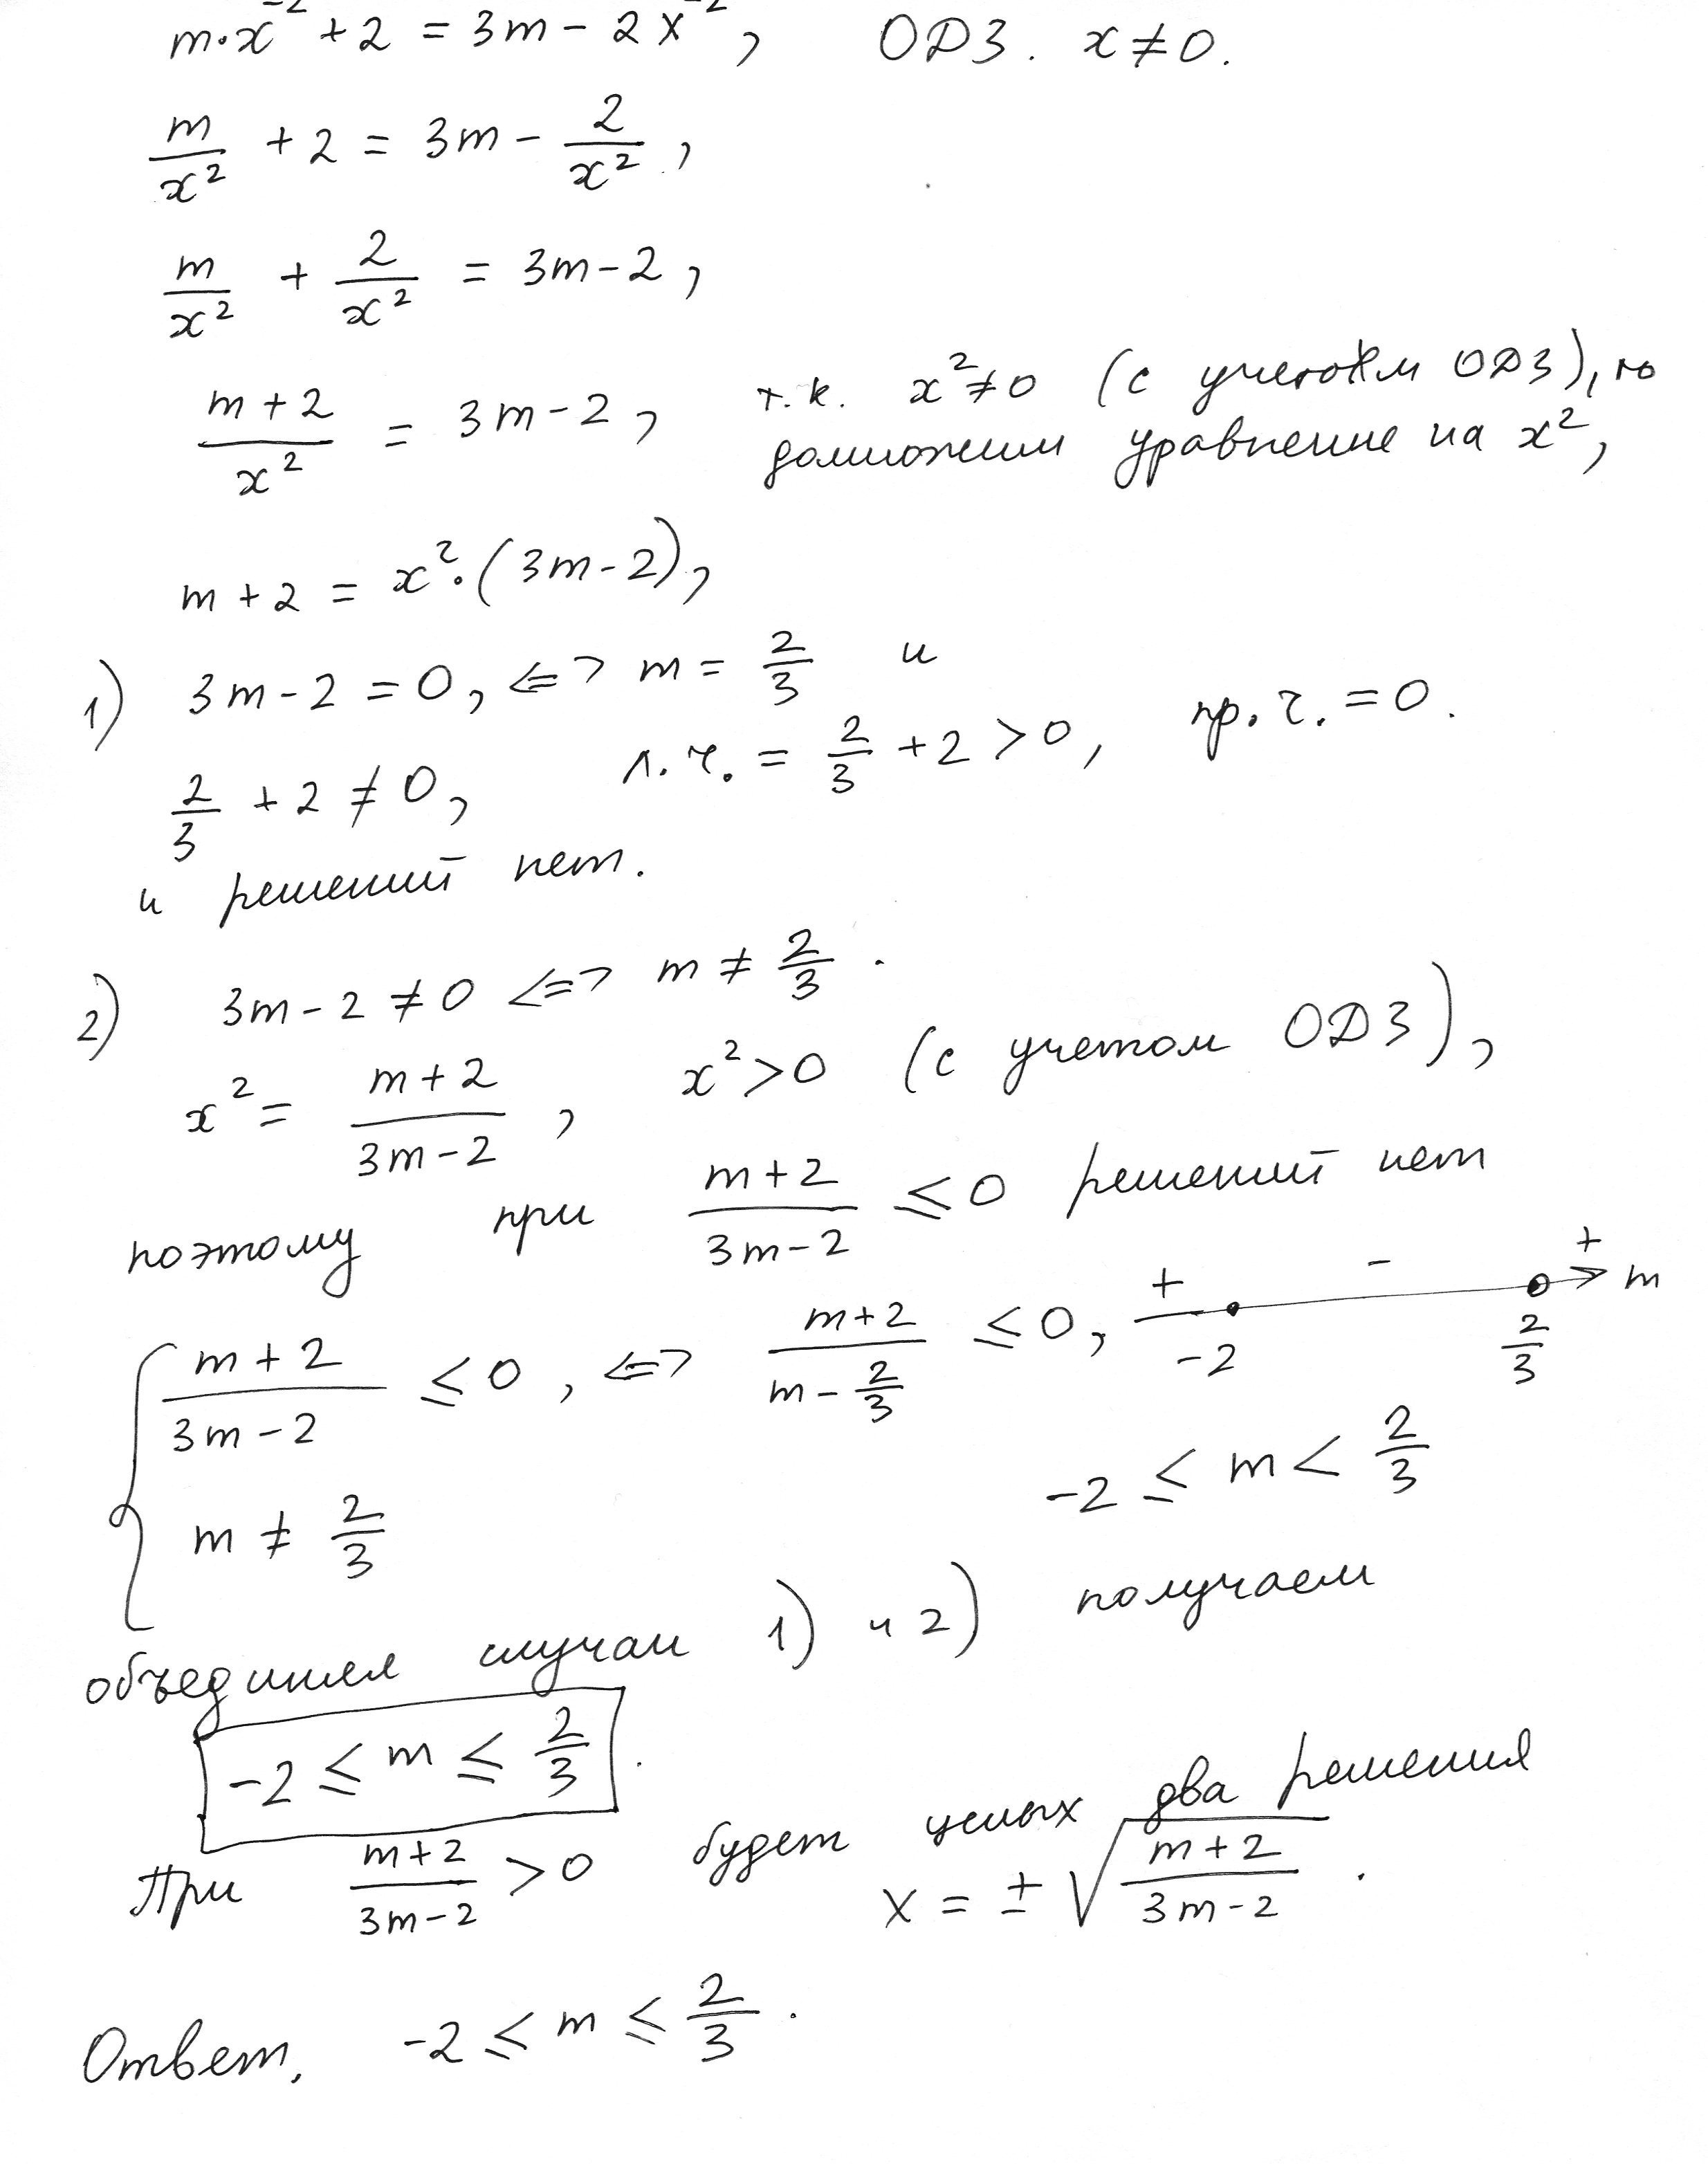 m·x⁻² + 2 = 3m − 2x⁻², ОДЗ. x ≠ 0.
m/x² + 2 = 3m − 2/x²,
m/x² + 2/x² = 3m − 2,
(m + 2)/x² = 3m − 2, т.к. x² ≠ 0 (с учетом ОДЗ), то
домножим уравнение на x²,
m + 2 = x²·(3m − 2),
1) 3m − 2 = 0, <=> m = 2/3 и
2/3 + 2 ≠ 0, л.ч. = 2/3 + 2 > 0, пр.ч. = 0.
и решений нет.
2) 3m − 2 ≠ 0 <=> m ≠ 2/3.
x² = (m + 2)/(3m − 2), x² > 0 (с учетом ОДЗ),
поэтому при (m + 2)/(3m − 2) ≤ 0 решений нет
{ (m + 2)/(3m − 2) ≤ 0, <=> (m + 2)/(m − 2/3) ≤ 0, + −2 − 2/3 + m
m ≠ 2/3 −2 ≤ m < 2/3
объединяя случаи 1) и 2) получаем
−2 ≤ m ≤ 2/3.
При (m + 2)/(3m − 2) > 0 будет целых два решения
x = ± √((m + 2)/(3m − 2)).
Ответ. −2 ≤ m ≤ 2/3.